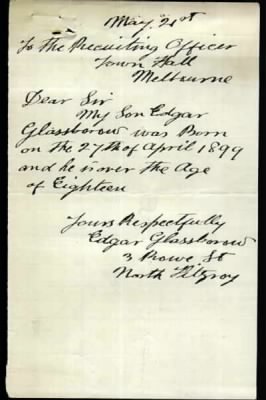 May. 21st
To The Recruiting Officer
Town Hall
Melbourne
Dear Sir
My Son Edgar
Glassborow was Born
on the 27th of April 1899
and he is over the Age
of Eighteen
Yours Respectfully
Edgar Glassborow
3 Rowe St
North Fitzroy